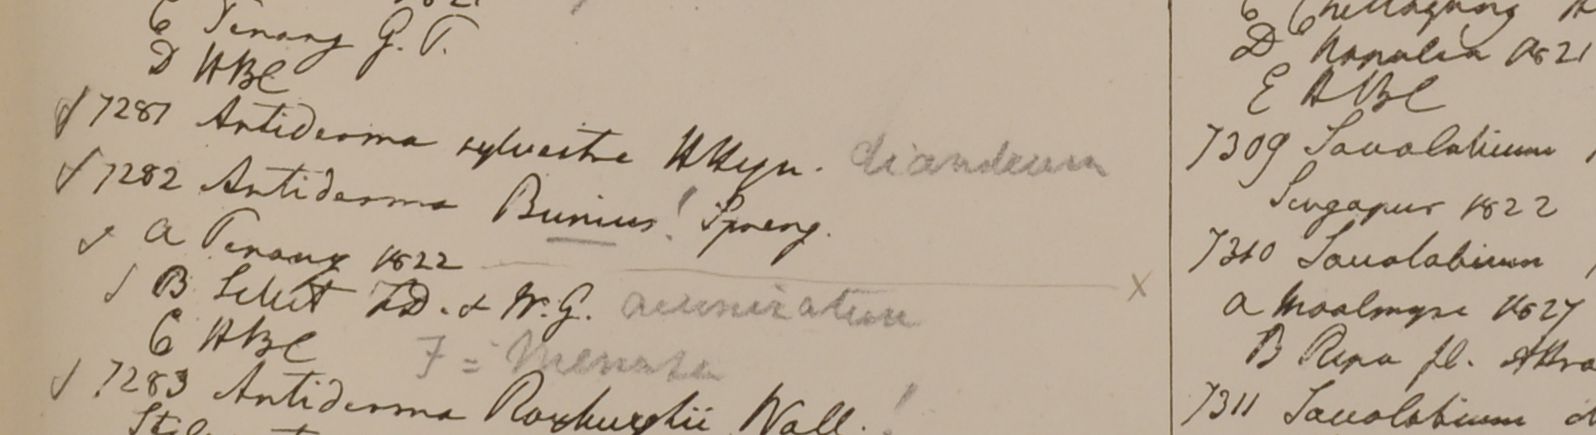 C Penang G. P.
D HBC
7281 Antidesma sylvestre HHeyn. diandrum
7282 Antidesma Bunius! Spreng.
a Penang 1822 x
B Silhet FD. & W.G. acuminatum
C HBC
7 = Menasu
7283 Antidesma Roxburghii Wall. !
D Napalia 1821
E HBC
7309 Sauolabium
Singapur 1822
7310 Sauolabium
a Moalmyne 1827
B Ripa fl.
7311 Sauolabium